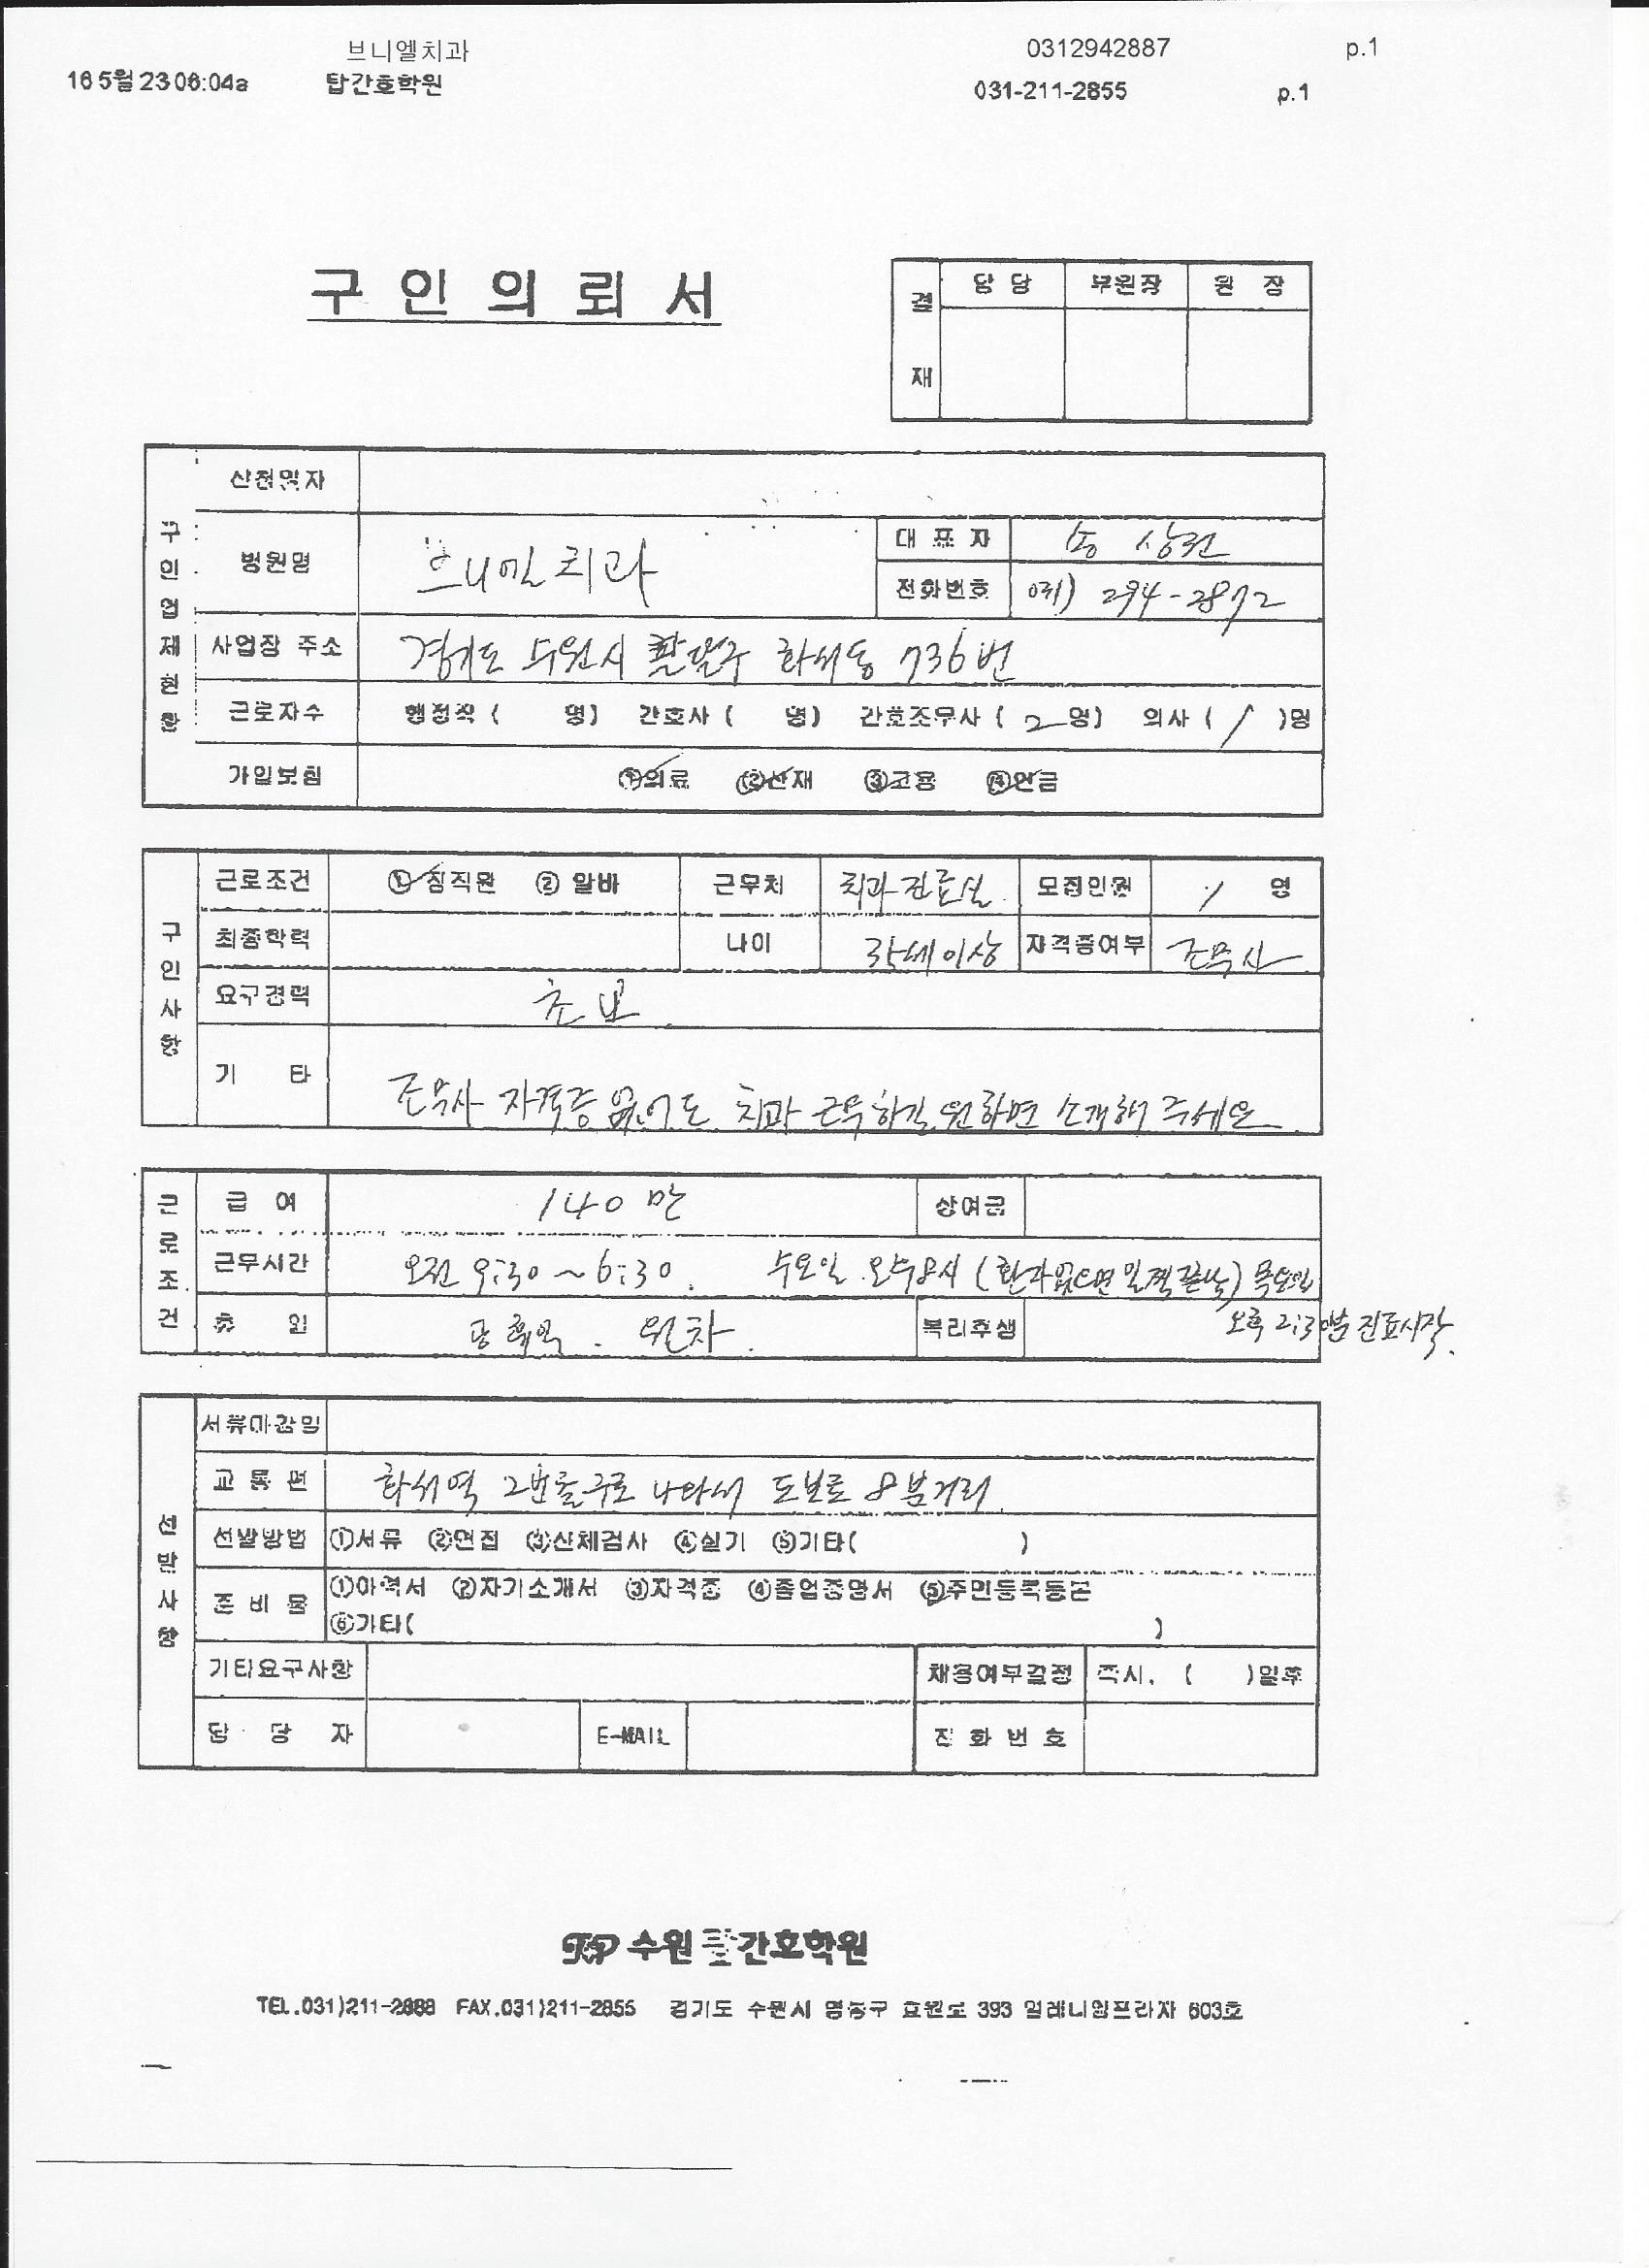 브니엘치과 0312942887 p.1
16 5월 23 06:04a 탑간호학원 031-211-2855 p.1
구 인 의 뢰 서
결 재 담 당 부원장 원 장
구 인 업 체 현 황
신청일자
병원명 브니엘치과 대 표 자 송 상헌
전화번호 031) 294-2872
사업장 주소 경기도 수원시 팔달구 화서동 736번
근로자수 행정직 ( 명) 간호사 ( 명) 간호조무사 ( 2 명) 의사 ( / )명
가입보험 ①의료 ②산재 ③고용 ④연금
구 인 사 항
근로조건 ① 정직원 ② 알바 근무처 치과진료실 모집인원 1 명
최종학력 나이 세이상 자격증여부 조무사
요구경력 초보
기 타 조무사 자격증 없어도 치과 근무하길 원하면 소개해 주세요
근 로 조 건
급 여 140만 상여금
근무시간 오전 9:30~6:30. 수요일 오후8시 (환자없으면 일찍끝남) 목요일
오후 2:30분 진료시작.
휴 일 공휴일. 월차. 복리후생
선 발 사 항
서류마감일
교 통 편 화서역 2번출구로 나와서 도보로 8분거리
선발방법 ①서류 ②면접 ③신체검사 ④실기 ⑤기타( )
준 비 물 ①이력서 ②자기소개서 ③자격증 ④졸업증명서 ⑤주민등록등본
⑥기타( )
기타요구사항 채용여부결정 즉시, ( )일후
담 당 자 E-MAIL 전 화 번 호
TOP 수원 탑간호학원
TEL.031)211-2888 FAX.031)211-2855 경기도 수원시 영통구 효원로 393 밀레니엄프라자 603호